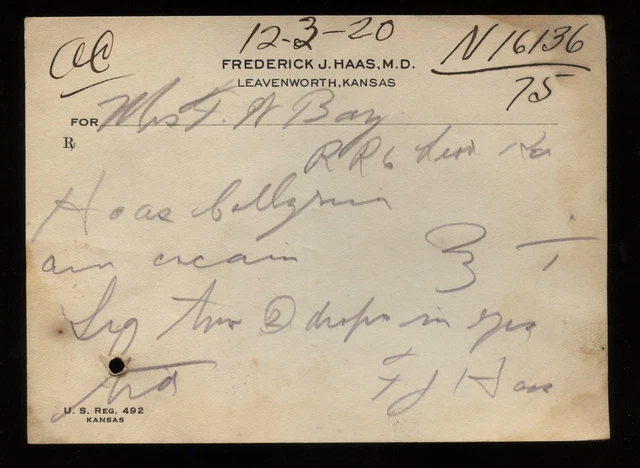 12-3-20
N 16136
FREDERICK J. HAAS, M.D.
LEAVENWORTH, KANSAS
75
FOR Mrs F. W Bay
℞
R R 6 Leav Ka
Haas Collyrium
ʒ i
Sig two 2 drops in eyes
F J Haas
U. S. REG. 492
KANSAS